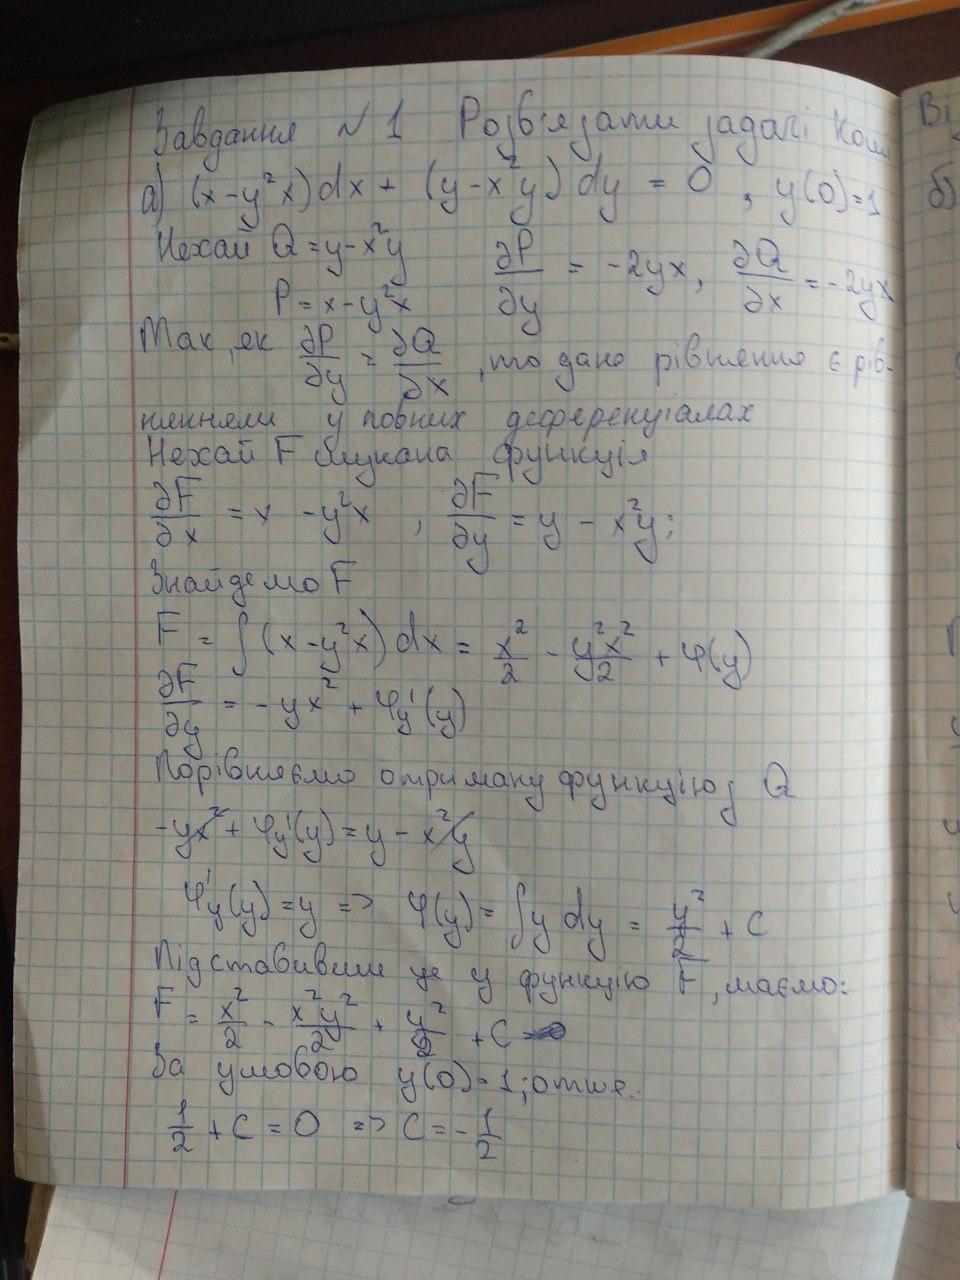 Завдання №1 Розв'язати задачі Кош
а) (x-y²x)dx + (y-x²y)dy = 0, y(0)=1
Нехай Q = y-x²y ∂P/∂y = -2yx, ∂Q/∂x = -2yx
P = x-y²x
Так, як ∂P/∂y = ∂Q/∂x, то дане рівняння є рів-
нянням у повних диференціалах
Нехай F шукана функція
∂F/∂x = x - y²x, ∂F/∂y = y - x²y;
Знайдемо F
F = ∫(x-y²x)dx = x²/2 - y²x²/2 + φ(y)
∂F/∂y = -yx² + φ'y(y)
Порівняємо отриману функцію з Q
-yx² + φ'y(y) = y - x²y
φ'y(y) = y => φ(y) = ∫y dy = y²/2 + C
Підставивши це у функцію F, маємо:
F = x²/2 - x²y²/2 + y²/2 + C
За умовою y(0)=1; отже.
1/2 + C = 0 => C = -1/2
Ві
б)